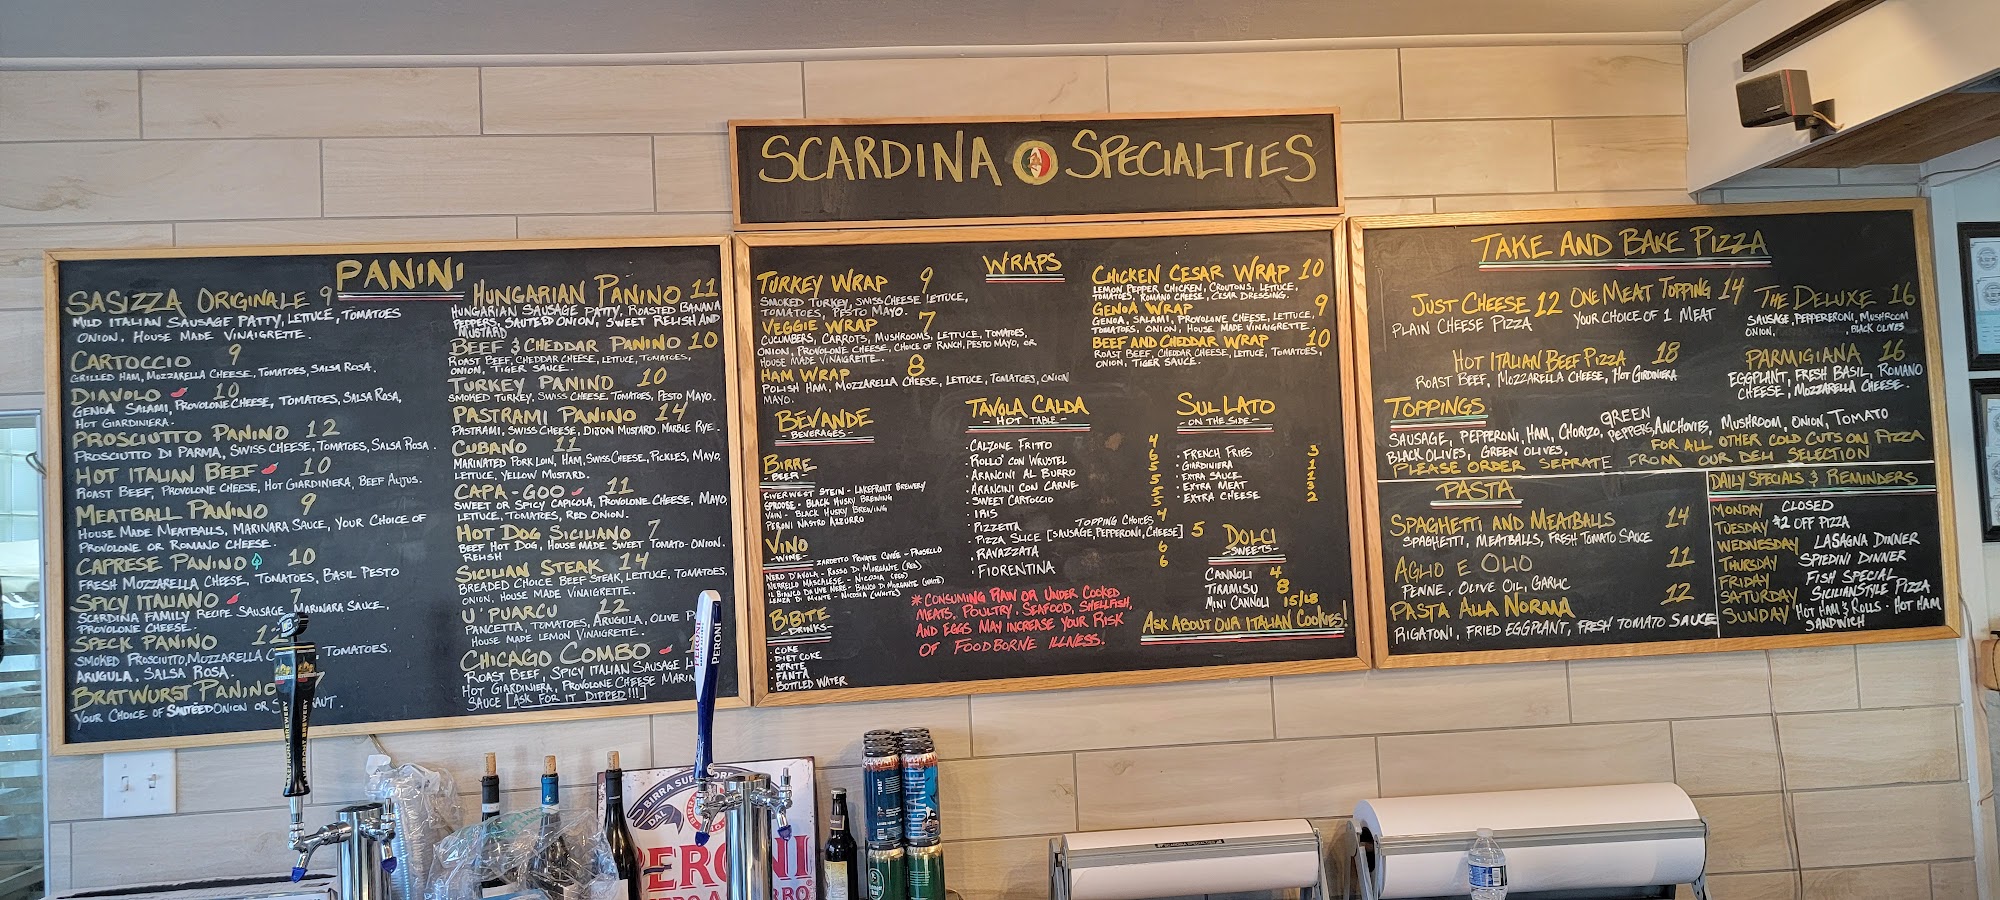 SCARDINA SPECIALTIES
PANINI
SASIZZA ORIGINALE 9
MILD ITALIAN SAUSAGE PATTY, LETTUCE, TOMATOES
ONION. HOUSE MADE VINAIGRETTE.
CARTOCCIO 9
GRILLED HAM, MOZZARELLA CHEESE, TOMATOES, SALSA ROSA.
DIAVOLO 10
GENOA SALAMI, PROVOLONE CHEESE, TOMATOES, SALSA ROSA,
HOT GIARDINIERA.
PROSCIUTTO PANINO 12
PROSCIUTTO DI PARMA, SWISS CHEESE, TOMATOES, SALSA ROSA.
HOT ITALIAN BEEF 10
ROAST BEEF, PROVOLONE CHEESE, HOT GIARDINIERA, BEEF AUJUS.
MEATBALL PANINO 9
HOUSE MADE MEATBALLS, MARINARA SAUCE, YOUR CHOICE OF
PROVOLONE OR ROMANO CHEESE.
CAPRESE PANINO 10
FRESH MOZZARELLA CHEESE, TOMATOES, BASIL PESTO
SPICY ITALIANO 7
SCARDINA FAMILY RECIPE SAUSAGE, MARINARA SAUCE,
PROVOLONE CHEESE.
SPECK PANINO
SMOKED PROSCIUTTO, MOZZARELLA TOMATOES.
ARUGULA, SALSA ROSA.
BRATWURST PANINO
YOUR CHOICE OF SAUTÉED ONION OR
HUNGARIAN PANINO 11
HUNGARIAN SAUSAGE PATTY, ROASTED BANANA
PEPPERS, SAUTEED ONION, SWEET RELISH AND
MUSTARD
BEEF & CHEDDAR PANINO 10
ROAST BEEF, CHEDDAR CHEESE, LETTUCE, TOMATOES,
ONION, TIGER SAUCE.
TURKEY PANINO 10
SMOKED TURKEY, SWISS CHEESE, TOMATOES, PESTO MAYO.
PASTRAMI PANINO 14
PASTRAMI, SWISS CHEESE, DIJON MUSTARD. MARBLE RYE.
CUBANO 11
MARINATED PORK LOIN, HAM, SWISS CHEESE, PICKLES, MAYO,
LETTUCE, YELLOW MUSTARD.
CAPA-GOO 11
SWEET OR SPICY CAPICOLA, PROVOLONE CHEESE, MAYO,
LETTUCE, TOMATOES, RED ONION.
HOT DOG SICILIANO 7
BEEF HOT DOG, HOUSE MADE SWEET TOMATO-ONION.
RELISH
SICILIAN STEAK 14
BREADED CHOICE BEEF STEAK, LETTUCE, TOMATOES,
ONION. HOUSE MADE VINAIGRETTE.
U' PUARCU 12
PANCETTA, TOMATOES, ARUGULA, OLIVE
HOUSE MADE LEMON VINAIGRETTE.
CHICAGO COMBO
ROAST BEEF, SPICY ITALIAN SAUSAGE
HOT GIARDINIERA, PROVOLONE CHEESE
SAUCE [ASK FOR IT DIPPED!!!]
WRAPS
TURKEY WRAP 9
SMOKED TURKEY, SWISS CHEESE LETTUCE,
TOMATOES, PESTO MAYO.
VEGGIE WRAP 7
CUCUMBERS, CARROTS, MUSHROOMS, LETTUCE, TOMATOES,
ONION, PROVOLONE CHEESE, CHOICE OF RANCH, PESTO MAYO, OR
HOUSE MADE VINAIGRETTE.
HAM WRAP 8
POLISH HAM, MOZZARELLA CHEESE, LETTUCE, TOMATOES, ONION
MAYO.
CHICKEN CESAR WRAP 10
LEMON PEPPER CHICKEN, CROUTONS, LETTUCE,
TOMATOES, ROMANO CHEESE, CESAR DRESSING.
GENOA WRAP 9
GENOA, SALAMI, PROVOLONE CHEESE, LETTUCE,
TOMATOES, ONION, HOUSE MADE VINAIGRETTE.
BEEF AND CHEDDAR WRAP 10
ROAST BEEF, CHEDDAR CHEESE, LETTUCE, TOMATOES,
ONION, TIGER SAUCE.
BEVANDE
- BEVERAGES -
BIRRE
- BEER -
RIVERWEST STEIN - LAKEFRONT BREWERY
SPROOSE - BLACK HUSKY BREWING
BLACK HUSKY BREWING
PERONI NASTRO AZZURRO
VINO
- WINE -
NERO D'AVOLA - ROSSO DI MORGANTE (RED)
NERRELLO MASCALESE - NICOSIA (RED)
BIBITE
- DRINKS -
· COKE
· DIET COKE
· SPRITE
· FANTA
· BOTTLED WATER
TAVOLA CALDA
- HOT TABLE -
· CALZONE FRITTO 4
· ROLLO' CON WRUSTEL 6
· ARANCINI AL BURRO 5
· ARANCINI CON CARNE 5
· SWEET CARTOCCIO 5
· IRIS 5
· PIZZETTA 4
TOPPING CHOICES
· PIZZA SLICE [SAUSAGE, PEPPERONI, CHEESE] 5
· RAVAZZATA 6
· FIORENTINA 6
* CONSUMING RAW OR UNDER COOKED
MEATS, POULTRY, SEAFOOD, SHELLFISH,
AND EGGS MAY INCREASE YOUR RISK
OF FOODBORNE ILLNESS.
SUL LATO
- ON THE SIDE -
· FRENCH FRIES 3
· GIARDINIERA 1
· EXTRA SAUCE 1
· EXTRA MEAT 3
· EXTRA CHEESE 2
DOLCI
- SWEETS -
CANNOLI 4
TIRAMISU 8
MINI CANNOLI
ASK ABOUT OUR ITALIAN COOKIES!
TAKE AND BAKE PIZZA
JUST CHEESE 12
PLAIN CHEESE PIZZA
ONE MEAT TOPPING 14
YOUR CHOICE OF 1 MEAT
THE DELUXE 16
SAUSAGE, PEPPERERONI, MUSHROOM
ONION, , BLACK OLIVES
HOT ITALIAN BEEF PIZZA 18
ROAST BEEF, MOZZARELLA CHEESE, HOT GIRDINIERA
PARMIGIANA 16
EGGPLANT, FRESH BASIL, ROMANO
CHEESE, MOZZARELLA CHEESE.
TOPPINGS
SAUSAGE, PEPPERONI, HAM, CHORIZO, GREEN PEPPERS, ANCHOVIES, MUSHROOM, ONION, TOMATO
BLACK OLIVES, GREEN OLIVES.
FOR ALL OTHER COLD CUTS ON PIZZA
PLEASE ORDER SEPRATE FROM OUR DELI SELECTION
PASTA
SPAGHETTI AND MEATBALLS 14
SPAGHETTI, MEATBALLS, FRESH TOMATO SAUCE
AGLIO E OLIO 11
PENNE, OLIVE OIL, GARLIC
PASTA ALLA NORMA 12
RIGATONI, FRIED EGGPLANT, FRESH TOMATO SAUCE
DAILY SPECIALS & REMINDERS
MONDAY CLOSED
TUESDAY $2 OFF PIZZA
WEDNESDAY LASAGNA DINNER
THURSDAY SPIEDINI DINNER
FRIDAY FISH SPECIAL
SATURDAY SICILIAN STYLE PIZZA
SUNDAY HOT HAM & ROLLS · HOT HAM
SANDWICH
LAKEFRONT BREWERY
PERONI
BIRRA
PERONI